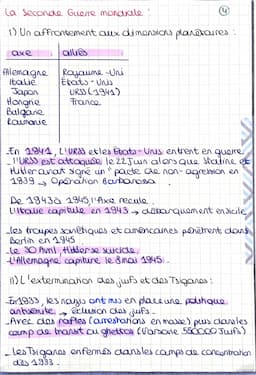 La Seconde Guerre mondiale :
4
I) Un affrontement aux dimensions planétaires :
axe
alliés
Allemagne
Italie
Japon
Hongrie
Bulgarie
Roumanie
Royaume-Uni
États-Unis
URSS (1941)
France
_ En 1941, l'URSS et les États-Unis entrent en guerre
_ l'URSS est attaquée le 22 Juin alors que Staline et
Hitler avait signé un "pacte de non-agression en
1939 → Opération Barbarossa
De 1943 à 1945, l'Axe recule.
L'Italie capitule en 1943 → débarquement en Sicile
_ les troupes soviétiques et américaines pénètrent dans
Berlin en 1945
_ Le 30 Avril, Hitler se suicide.
_ L'Allemagne capitule le 8 mai 1945.
II) L'extermination des juifs et des Tsiganes :
_ En 1933, les nazis ont mis en place une politique
antisémite → exclusion des juifs.
_ Avec des rafles (arrestations en masse) puis dans les
camp de transit ou ghettos (Varsovie 550000 Juifs)
_ les Tsiganes enfermés dans les camps de concentration
dès 1933.